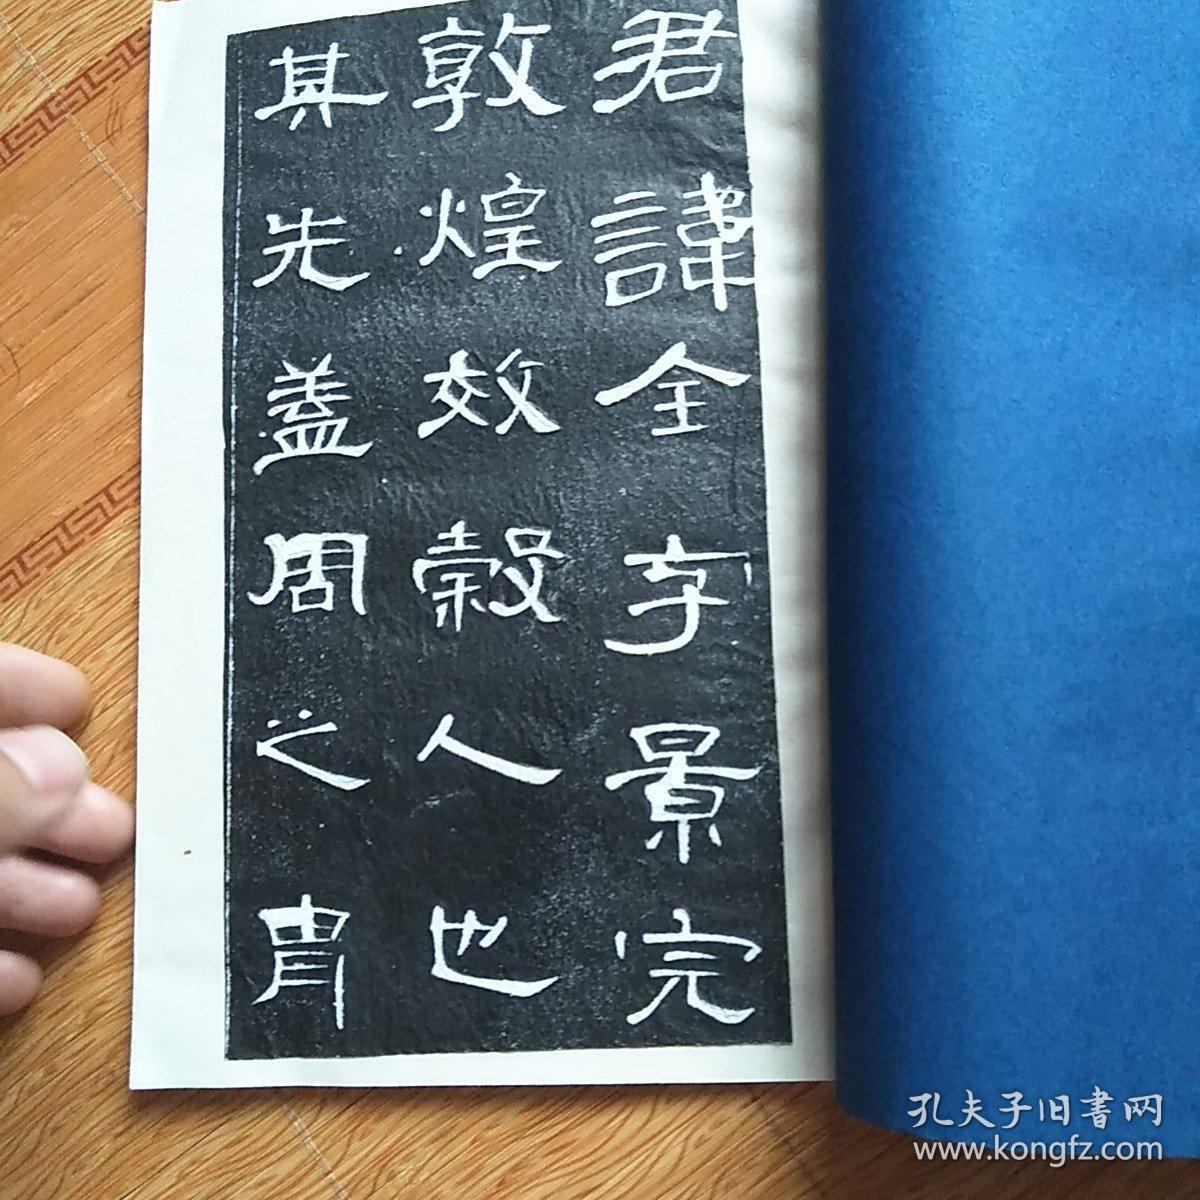 君諱全字景完
敦煌效穀人也
其先盖周之胄
孔夫子旧書网
www.kongfz.com